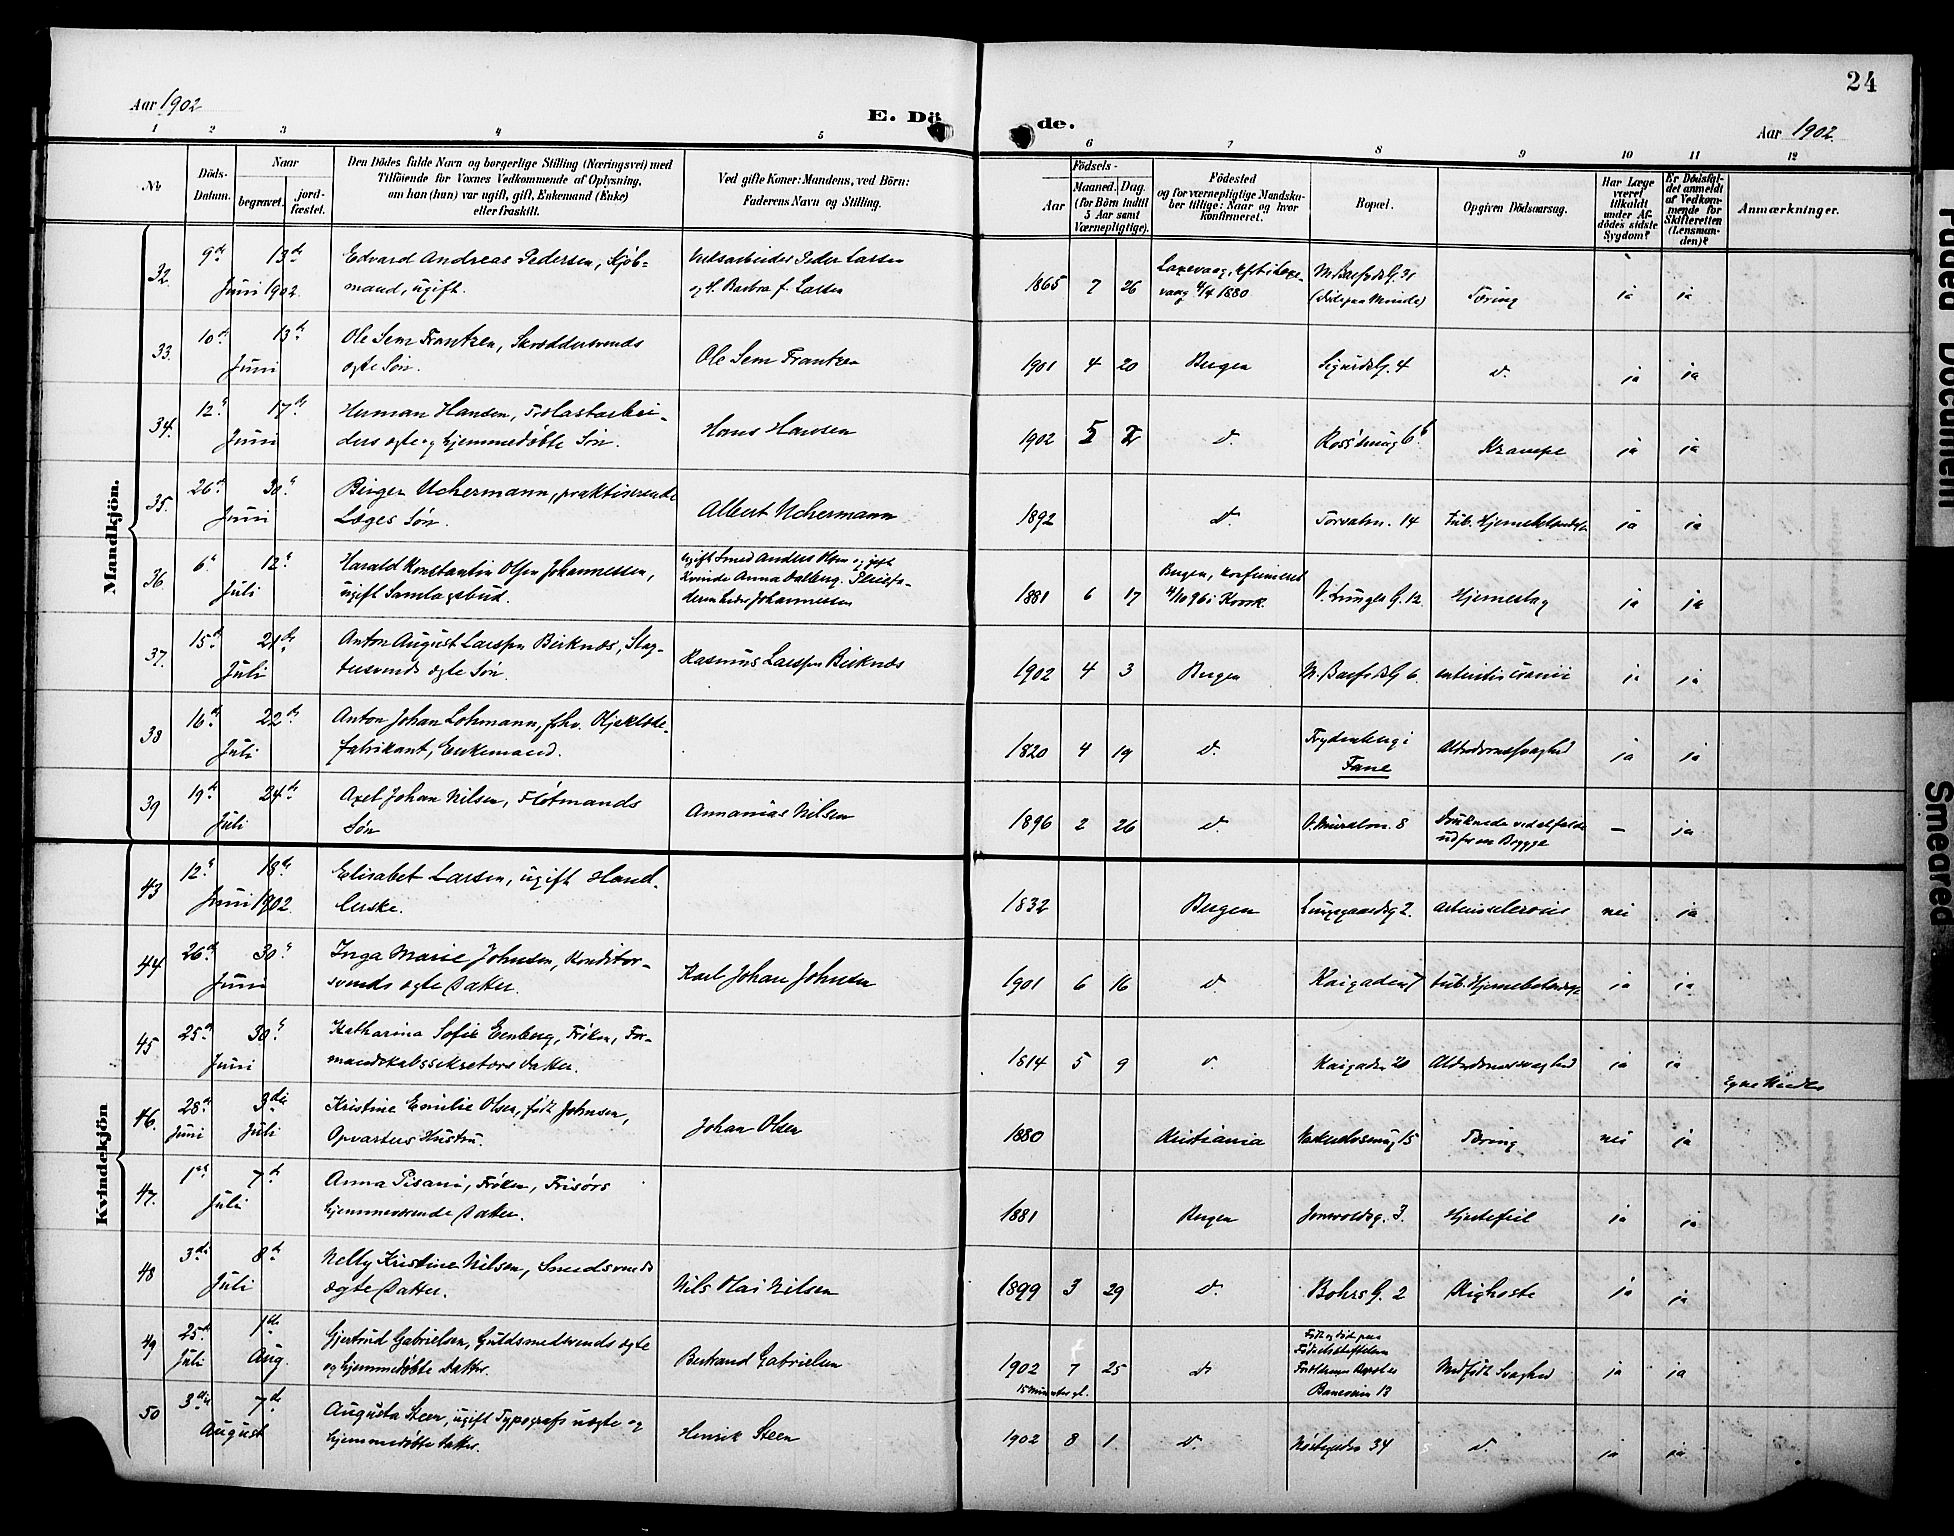 24
Aar 1902
E. Dö de.
Aar 1902.
1 2 3 4 5 6 7 8 9 10 11 12
№
Döds-
Datum.
Naar
begravet.
jord-
fæstet.
Den Dödes fulde Navn og borgerlige Stilling (Næringsvei) med
Tilföiende for Voxnes Vedkommende af Oplysning,
om han (hun) var ugift, gift, Enkemand (Enke)
eller fraskilt.
Ved gifte Koner: Mandens, ved Börn:
Faderens Navn og Stilling.
Födsels-
Aar
Maaned.
Dag.
(for Börn indtil
5 Aar samt
Værnepligtige).
Födested
og for værnepligtige Mandska-
ber tillige: Naar og hvor
konfirmeret.
Bopæl.
Opgiven Dödsaarsag.
Har Læge
været
tilkaldt
under Af-
dödes sidste
Sygdom?
Er Dödsfal-
det anmeldt
af Vedkom-
mende for
Skifteretten
(Lensman-
den)?
Anmærkninger.
Mandkjön.
32. 9de 13de Juni 1902.
Edvard Andreas Pedersen, Kjöb-
mand, ugift.
Peder Larsen
og H. Barbra f. Larsen
1865 7 26
Laxevaag, kft i Laxe-
vaag 4/4 1880.
31
Tæring ja ja
33. 10de 13de Juni
Ole Sem Frantzen, Skræddersvends
ægte Søn.
Ole Sem Frantzen
1901 4 20 Bergen Sigurdsg. 4 d. ja ja
34. 12te 17de Juni
Herman Hansen,
ders ægte og hjemmedøbte Søn.
Hans Hansen
1902 5 d. Krampe ja ja
35. 26de 30te Juni
Birger Uchermann, praktiserende
Læges Søn.
Albert Uchermann
1892 d. Torvalm. 14 ja ja
36. 6te 12te Juli
Harald Konstantin Olsen Johannessen,
ugift Samlagsbud.
Ugift Smed Anders Olsen og gift
Kvinde Anna Dalberg.
Johannessen
1881 6 17
Bergen, konfirmeret
4/10 96 i Korsk.
12 Hjerneslag ja ja
37. 15de 21de Juli
Anton August Larsen Birknes, Slag-
tersvends ægte Søn.
Rasmus Larsen Birknes
1902 4 3 Bergen 6. ja ja
38 16de 22de Juli
Anton Johan Lohmann, fhv. Oljeklæde-
fabrikant, Enkemand.
1820 4 19 d.
Frydenberg i
Fane
Alderdomssvaghed ja ja
39 19de 24de Juli
Axel Johan Nilsen, Fløtmands
Søn
Annanias Nilsen
1896 2 26 d. Ø. Muralm. 8
Druknede ved at falde
ud fra en Brygge
— ja
Kvindekjön
43 12te 18de Juni 1902.
Elisabet Larsen, ugift Hand-
lerske.
1832 Bergen Lungegaardsg 2. nei ja
44 26de 30te Juni
Inga Marie Johnsen, Konditor-
svends ægte Datter.
Karl Johan Johnsen
1901 6 16 d. Kaigaden 7 ja ja
45. 25de 30te Juni
Katharina Sofie Eenberg, Frøken, For-
mandskabssekretærs Datter.
1814 5 9 d. Kaigaden 20 Alderdomssvaghed ja ja
46. 28de Juni 3die Juli
Kristine Emilie Olsen, født Johnsen,
Opvarters Hustru.
Johan Olsen
1880 Kristiania 15 Tæring nei ja
47. 1ste 7de Juli
Anna Pisani, Frøken, Frisørs
hjemmeværende Datter.
1881 Bergen 3. Hjertefeil ja ja
48 3die 8de Juli
Nelly Kristine Nilsen, Smedsvends
ægte Datter.
Nils Olai Nilsen
1899 3 29 d. Bohrs G. 2 Kighoste ja ja
49 25de Juli 1ste Aug.
Gjertrud Gabrielsen, Guldsmedsvends ægte
og hjemmedøbte Datter.
Bertrand Gabrielsen
1902 7 25
15 Minutter gl.
d.
Født og død paa
Fødselsstiftelsen
13
Medfødt Svaghed ja ja
50 3die 7de August
Augusta Steen, ugift Typografs uægte og
hjemmedøbte Datter.
Henrik Steen
1902 8 1 d. Nøstegaden 34 d. ja ja
Faded Document
Smeared